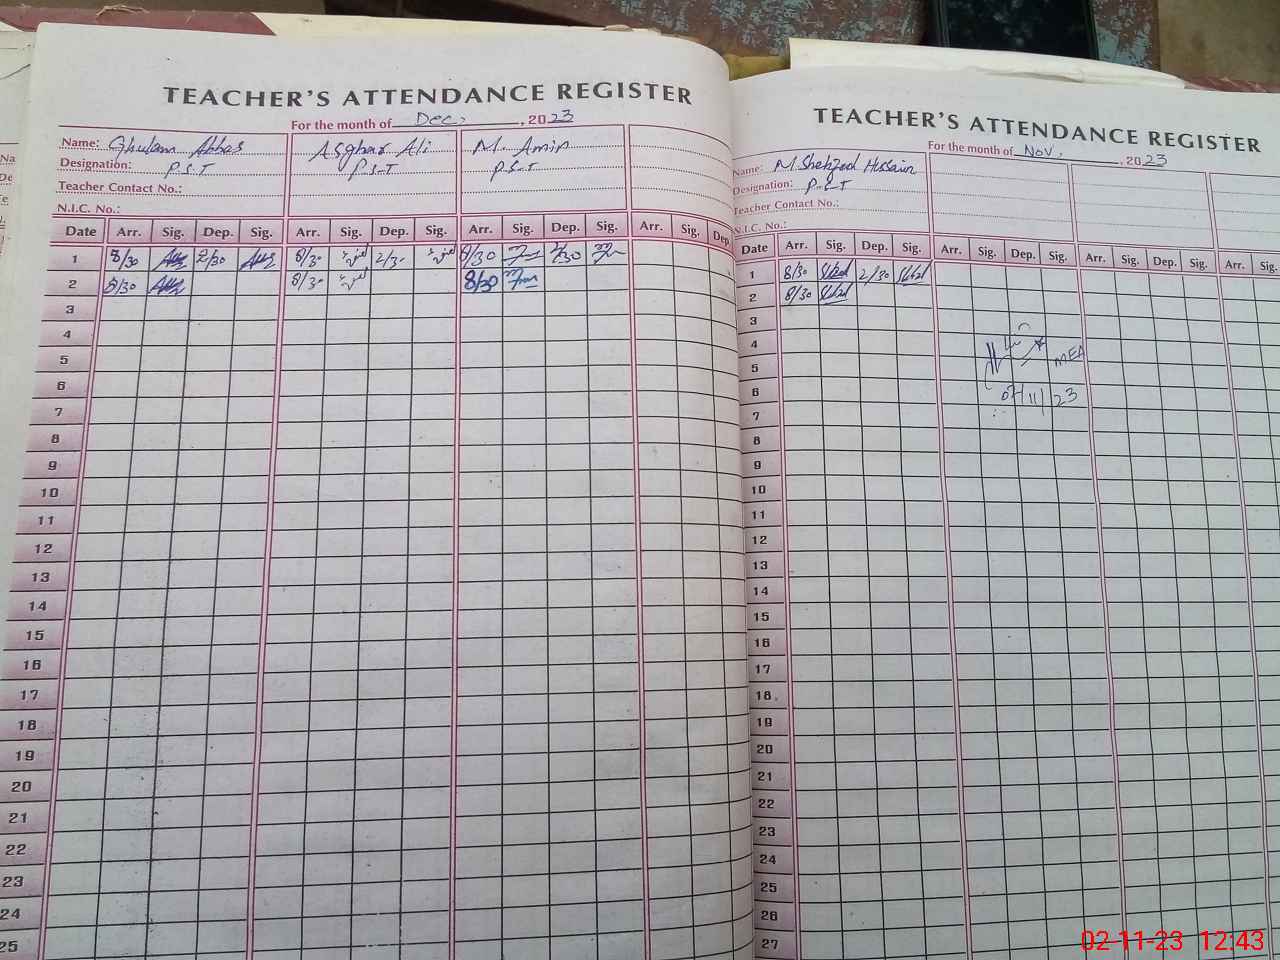 TEACHER'S ATTENDANCE REGISTER
For the month of Dec, , 2023
Name: Ghulam Abbas Asghar Ali M. Amin
Designation: P.S.T P.S.T P.S.T
Teacher Contact No.:
N.I.C. No.:
Date Arr. Sig. Dep. Sig. Arr. Sig. Dep. Sig. Arr. Sig. Dep. Sig. Arr. Sig. Dep.
1 8/30 2/30 8/30 2/30 8/30 2/30
2 8/30 8/30 8/30
3
4
5
6
7
8
9
10
11
12
13
14
15
16
17
18
19
20
21
22
23
24
25
TEACHER'S ATTENDANCE REGISTER
For the month of Nov, , 2023
Name: M. Shehzad Hussain
Designation: P.S.T
Teacher Contact No.:
N.I.C. No.:
Date Arr. Sig. Dep. Sig. Arr. Sig. Dep. Sig. Arr. Sig. Dep. Sig. Arr. Sig.
1 8/30 2/30
2 8/30
3
4
5 MEA
6 02/11/23
7
8
9
10
11
12
13
14
15
16
17
18
19
20
21
22
23
24
25
26
27
02-11-23 12:43